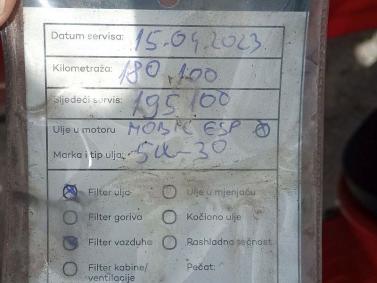 Datum servisa: 15.04.2023
Kilometraža: 180.100
Sljedeći servis: 195100
Ulje u motoru MOBIL ESP
Marka i tip ulja: 5W-30
Filter ulja Ulje u mjenjaču
Filter goriva Kočiono ulje
Filter vazduha Rashladna tečnost
Filter kabine/ Pečat:
ventilacije